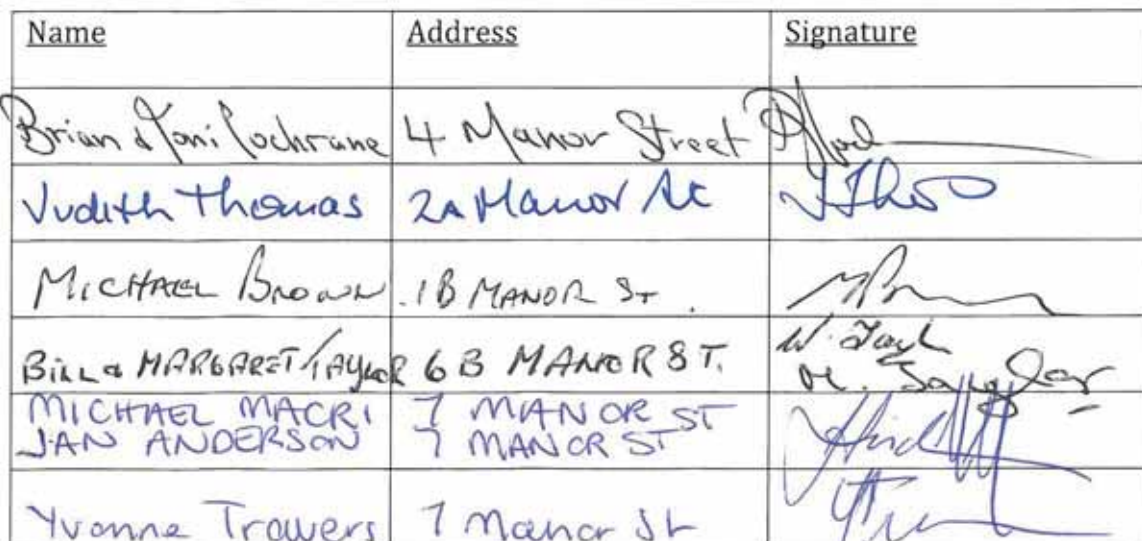 Name Address Signature
Brian & Toni Cochrane 4 Manor Street
Judith Thomas 2A Manor St
MICHAEL BROWN 1B MANOR ST.
BILL & MARGARET TAYLOR 6B MANOR ST. W. Tayl
M. Taylor
MICHAEL MACRI 7 MANOR ST
JAN ANDERSON 7 MANOR ST
Yvonne Trowers 7 Manor St